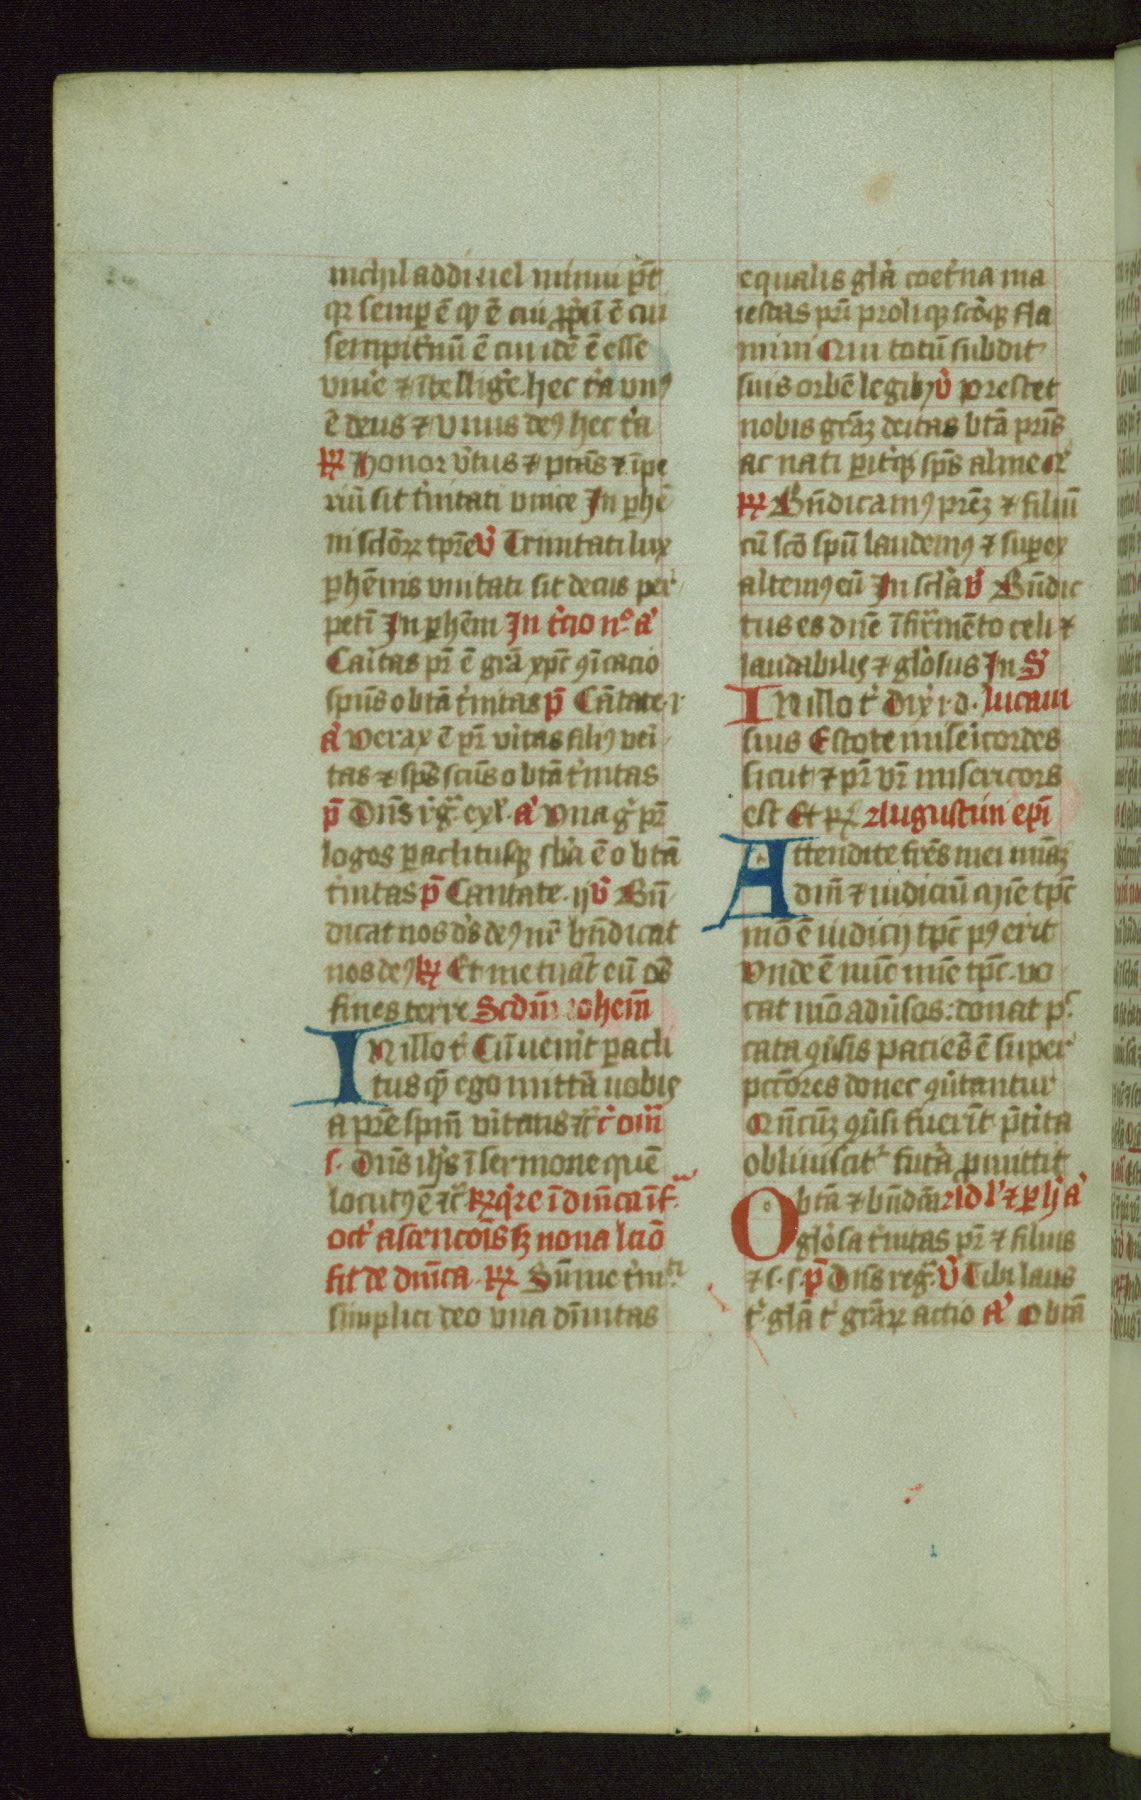 nichil addi uel minui pot̄
qr semp̲ ē qd̄ ē cui ꝓpiū ē cui
sempit̄nū ē cui idē ē esse
viuēe ⁊ ītelligēe hec t͛a vnꝰ
ē deus ⁊ vnus deꝰ hec t͛a
℟ Honor v̓tus ⁊ ptās ⁊ īpe
riū sit t͛nitati vnice In phē
ni sclōꝝ tp̄re v̓ Trinitati lux
phēnis vnitati sit decus per
petī In p̲hēni In t͛cio nº a͛
Caitas pr̄ ē grā xp̄c ꝯīcacio
spūs o btā t͛nitas p̄ Cātate · i
a͛ Verax ē pr̄ v̓itas filiꝰ v̓i
tas ⁊ sp̄s scūs o btā t͛nitas
p̄ Dn̄s rg̓ · exl̓ · a͛ Vna g̓ pr̄
logos paclitusqꝫ sb̓a ē o btā
t͛nitas p̄ Cantate · ij v̓ Bn̄
dicat nos d̓s deꝰ nr̄ bn̄dicat
nos deꝰ ℟ Et metuāt eū oēs
fines terre Scdm̄ iohem̄
IN illo t͛ Cū uenit pacli
tus qm̄ ego mittā uobis
a pr̄e spm̄ v̓itatis ⁊c̄ t͛ om̄i
s · Dn̄s ihs̄ ī sermone quē
locutꝰ ē ⁊c̄ · ℟ q̓re ī dn̄ica īf̄
oct̓ ascencōis sꝫ nona lcīo
fit de dn̄ica · ℟ Sūme t͛nitati
simplici deo vna dīnitas
equalis glā coet͛na ma
iestas pr̄i proliqꝫ scōqꝫ fla
mini Qui totū subdit
suis orbē legibꝫ v̓ Prestet
nobis grāꝫ deitas btā pr̄is
ac nati pit̓qꝫ sp̄s alme
℟ Bn̄dicamꝰ pr̄eꝫ ⁊ filiū
cū scō spū laudemꝰ ⁊ super
altemꝰ eū In sclā v̓ Bn̄dic
tus es dn̄e ī firmēto celi ⁊
laudabilis ⁊ gl̓osus In S̓
IN illo t͛ Dix̓ i · d · lucam
suis Estote miseicordes
sicut ⁊ pr̄ vr̄ misericors
est Et r̄ Augustin̄ ep̄i
Attendite frēs mei miāꝫ
dīn̄ ⁊ iudiciū mīe tp̄c
mō ē iudicij tp̄c pꝰ erit
Vnde ē nūc mīe tp̄c · vo
cat mō aduersos : donat pc̄
cata ꝯu̓sis paciēs ē super
pctōres donec ꝯu̓tantur
Qn̄cūꝫ ꝯu̓si fuerīt p̄t͛ita
obliuiscit͛ fut͛a ꝓmittit
O btā ⁊ bn̄dcā Ad l̓ ⁊ p h̓ a͛
gl̓osa t͛nitas pr̄ ⁊ filius
⁊ s · s · p̄ Dn̄s reg̓ · v̓ Tibi laus
t͛ glā t͛ grāꝝ actio a͛ O btā